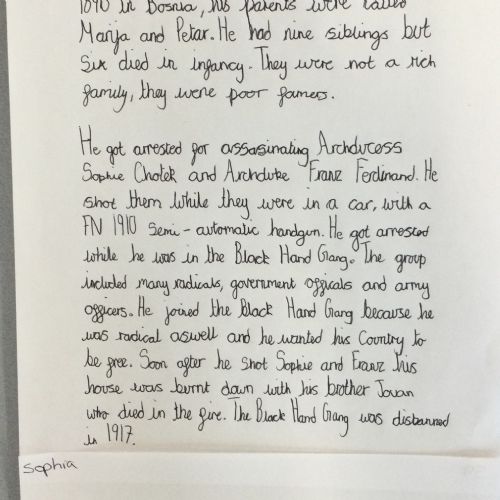 1890 in Bosnia, his parents were called
Marija and Petar. He had nine siblings but
Six died in infancy. They were not a rich
family, they were poor famers.
He got arrested for assasinating Archducess
Sophie Chotek and Archduke Franz Ferdinand. He
shot them while they were in a car, with a
FN 1910 Semi-automatic handgun. He got arrested
while he was in the Black Hand Gang. The group
included many radicals, government officals and army
officers. He joined the Black Hand Gang because he
was radical aswell and he wanted his Country to
be free. Soon after he shot Sophie and Franz his
house was burnt down with his brother Jovan
who died in the fire. The Black Hand Gang was disbanned
in 1917.
Sophia